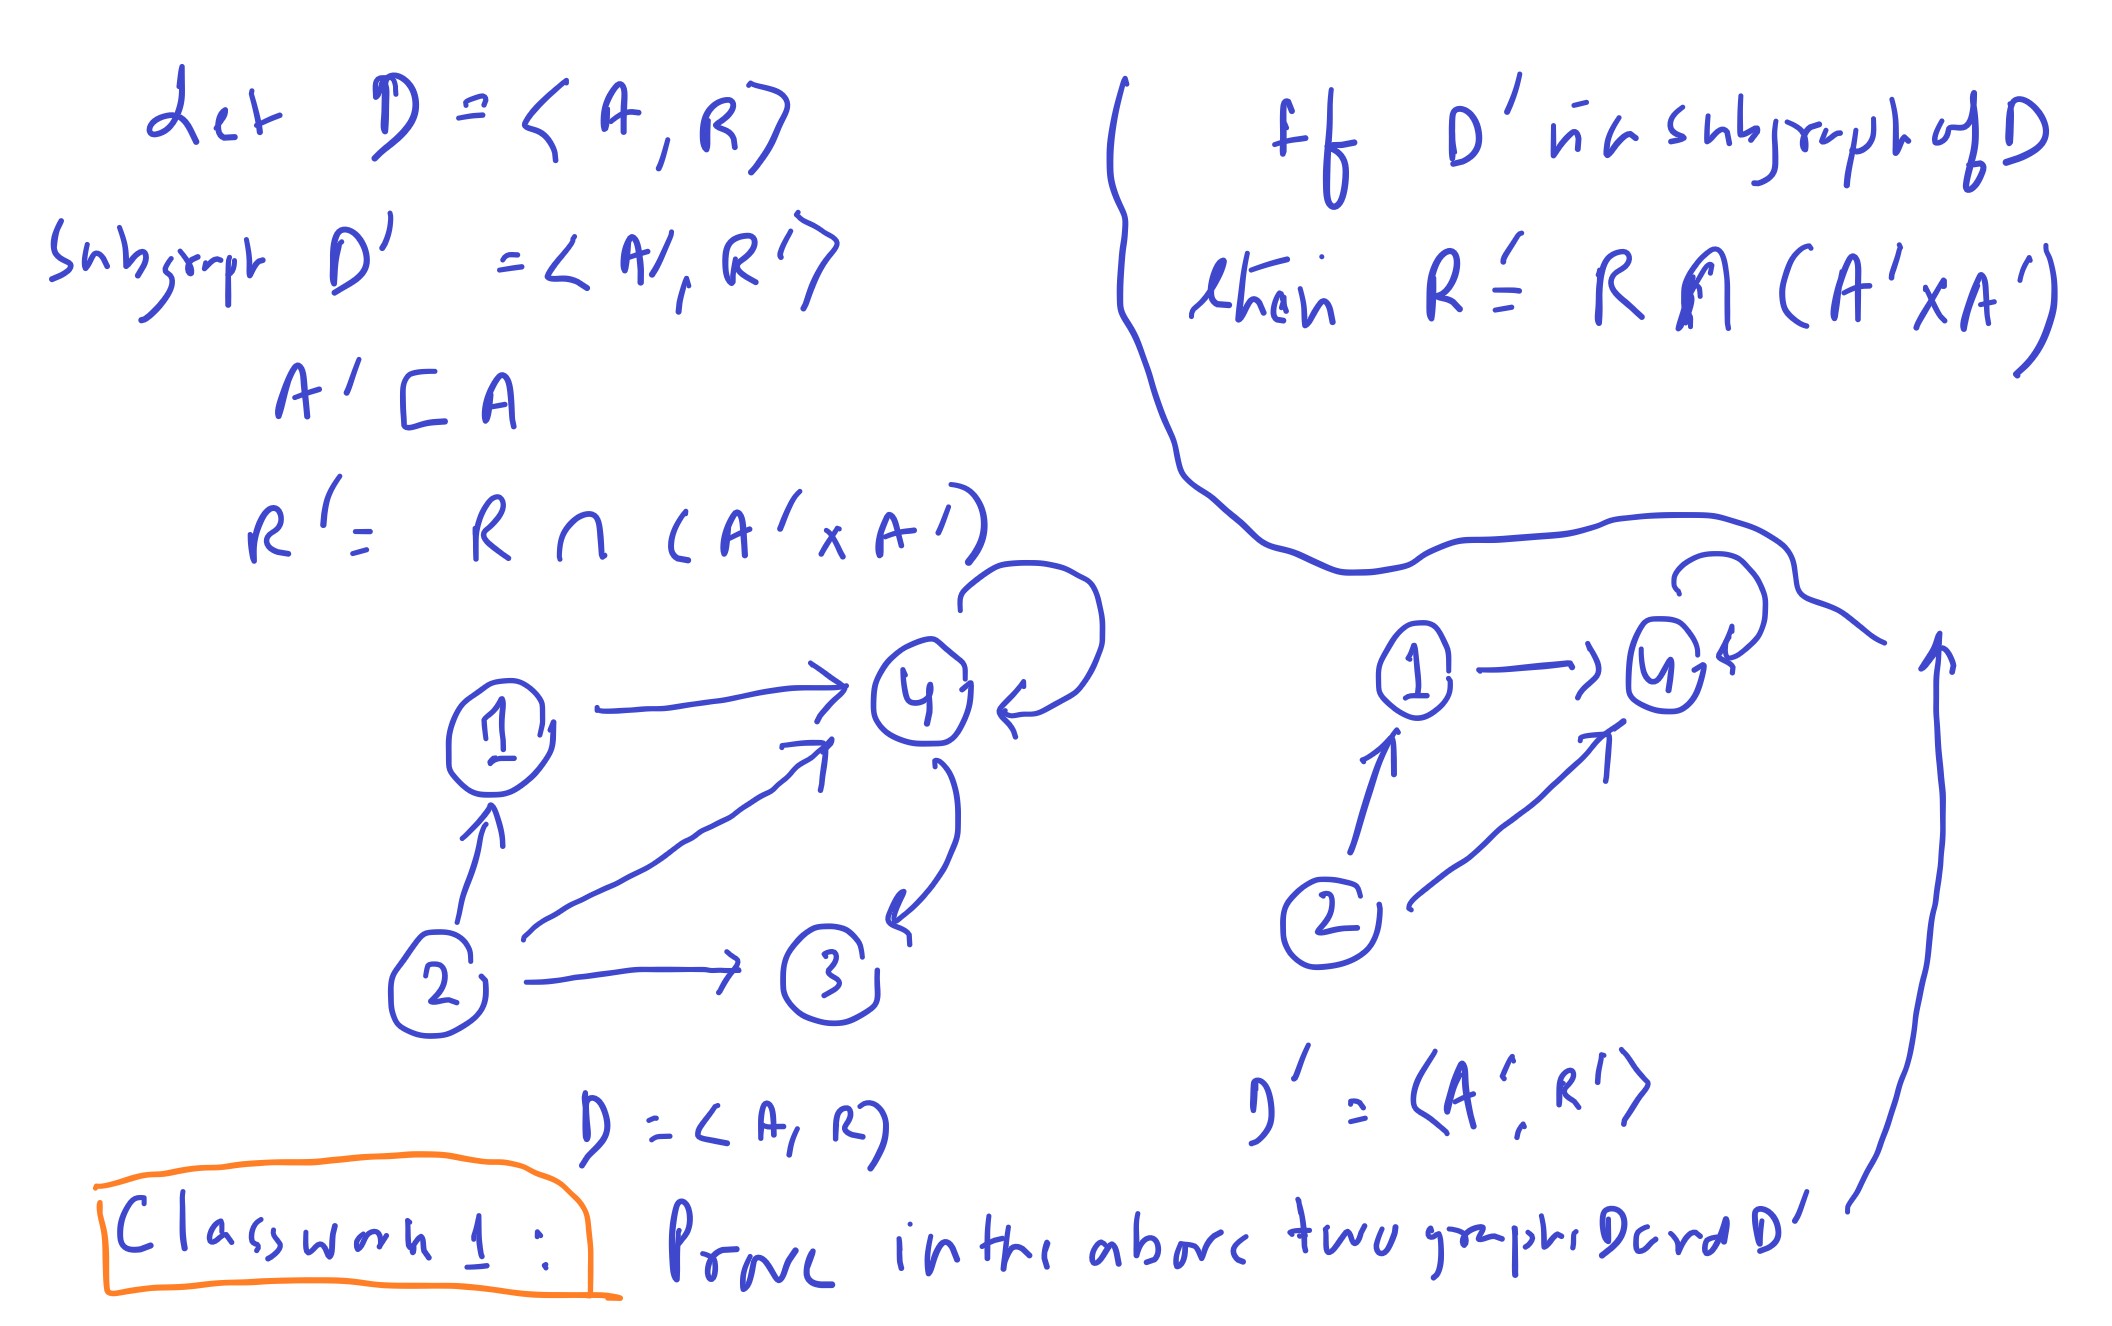 Let D = < A, R >
Subgraph D' = < A', R' >
A' ⊏ A
R' = R ∩ (A' × A')
If D' is a subgraph of D
then R' = R ∩ (A' × A')
1
4
2
3
D = < A, R >
1
4
2
D' = < A', R' >
Classwork 1 : Prove in the above two graphs D and D'